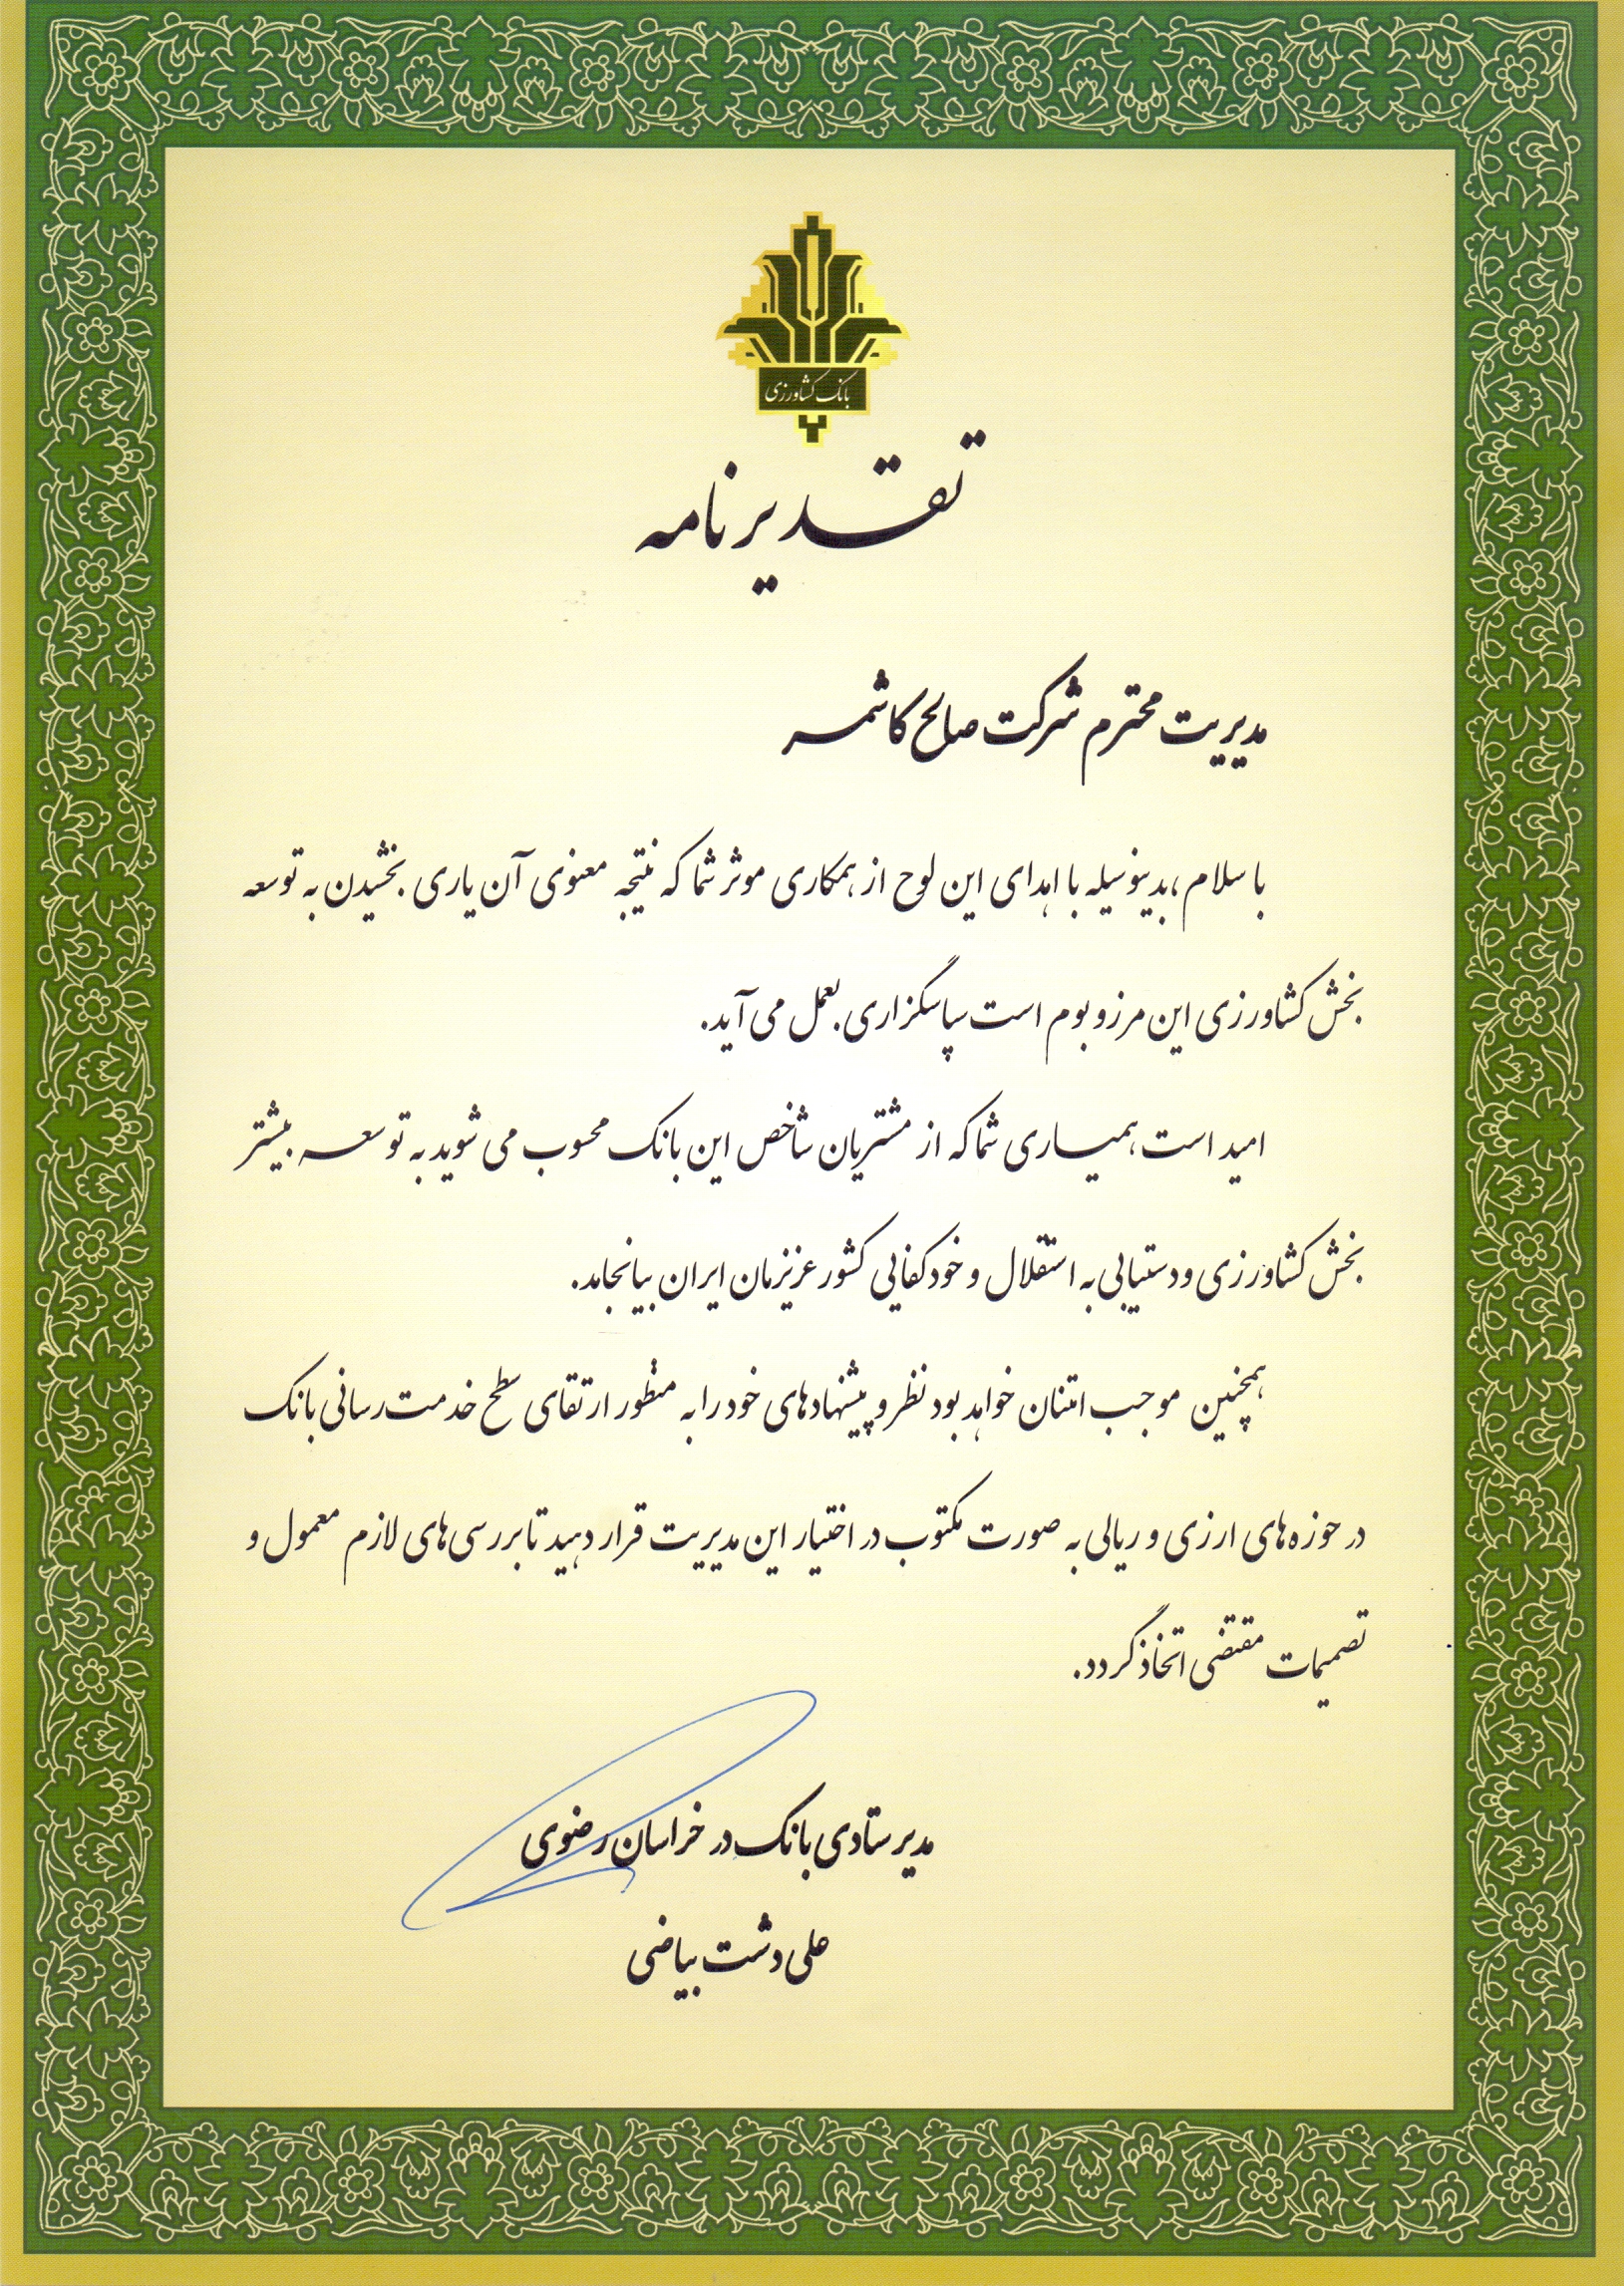 بانک کشاورزی
تقدیرنامه
مدیریت محترم شرکت صالح کاشمر
با سلام ، بدینوسیله با اهدای این لوح از همکاری موثر شما که نتیجه معنوی آن یاری بخشیدن به توسعه
بخش کشاورزی این مرز و بوم است سپاسگزاری بعمل می آید.
امید است همیاری شما که از مشتریان شاخص این بانک محسوب می شوید به توسعه بیشتر
بخش کشاورزی و دستیابی به استقلال و خودکفایی کشور عزیزمان ایران بیانجامد.
همچنین موجب امتنان خواهد بود نظر و پیشنهادهای خود را به منظور ارتقای سطح خدمت رسانی بانک
در حوزه های ارزی و ریالی به صورت مکتوب در اختیار این مدیریت قرار دهید تا بررسی های لازم معمول و
تصمیمات مقتضی اتخاذ گردد.
مدیر ستادی بانک در خراسان رضوی
علی دشت بیاضی